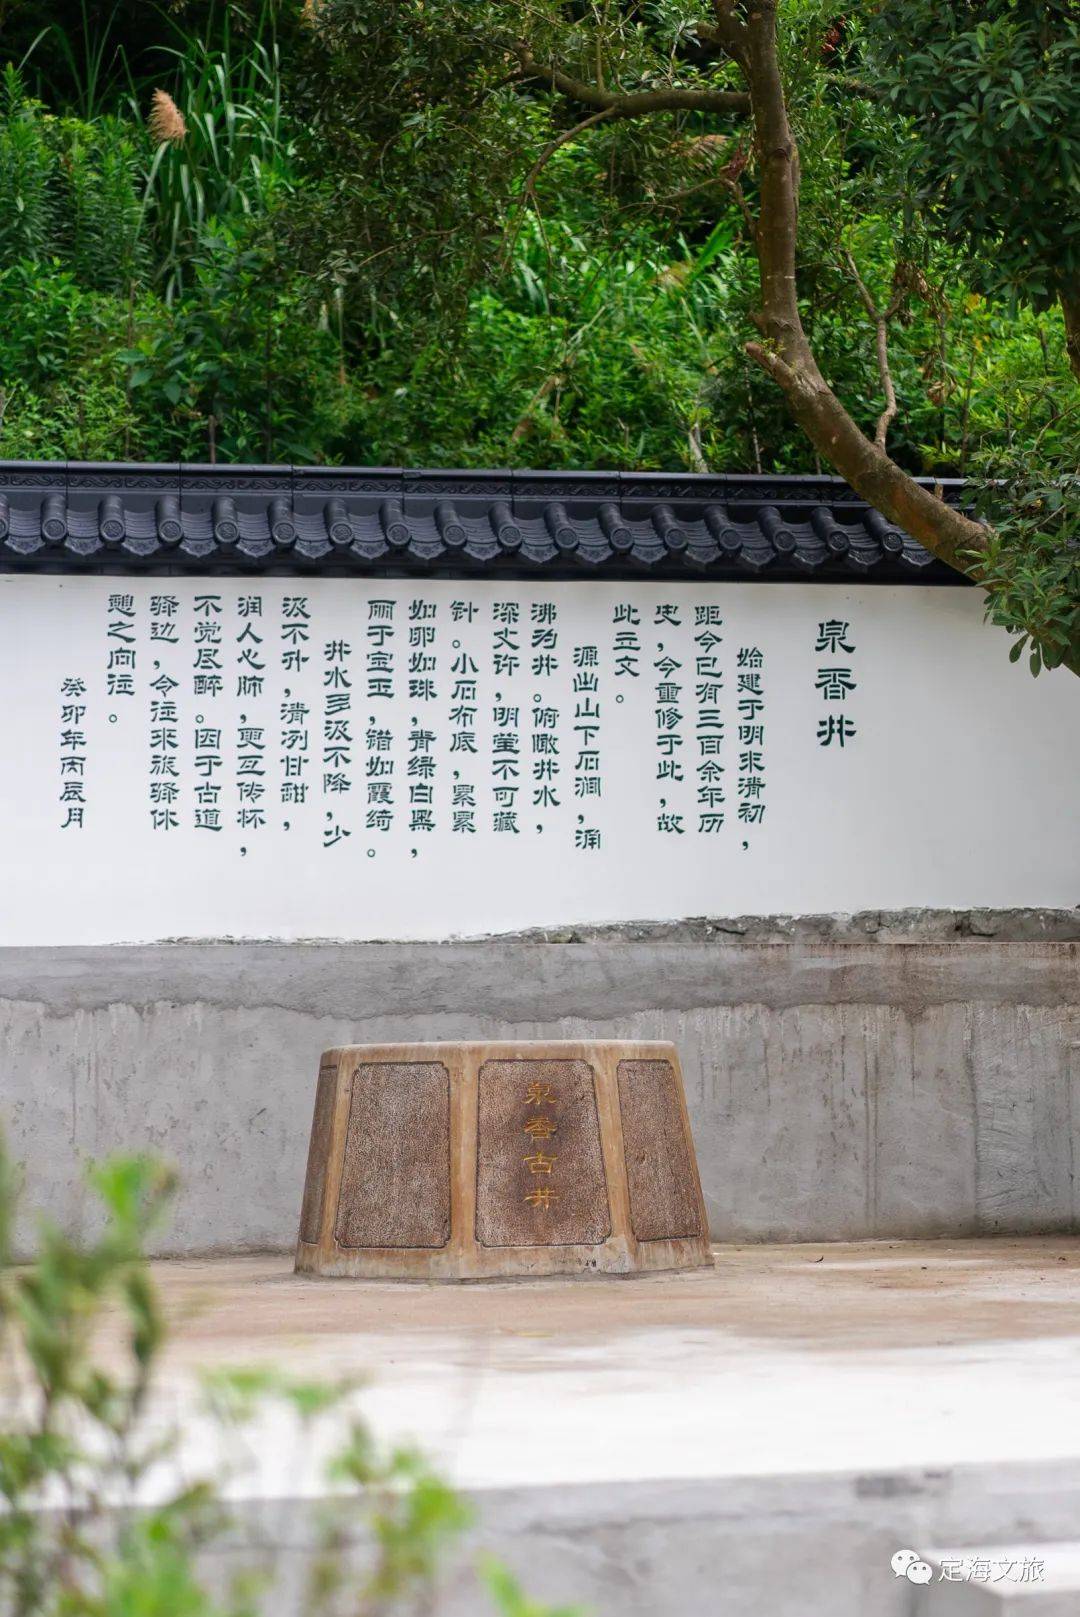 泉香井
始建于明末清初，
距今已有三百余年历
史，今重修于此，故
此立文。
源出山下石涧，涌
沸为井。俯瞰井水，
深丈许，明莹不可藏
针。小石布底，累累
如卵如珠，青绿白黑，
丽于宝玉，错如霞绮。
井水多汲不降，少
汲不升，清冽甘甜，
润人心肺，更互传杯，
不觉尽醉。因于古道
驿边，令往来旅驿休
憩之向往。
癸卯年丙辰月
泉香古井
定海文旅